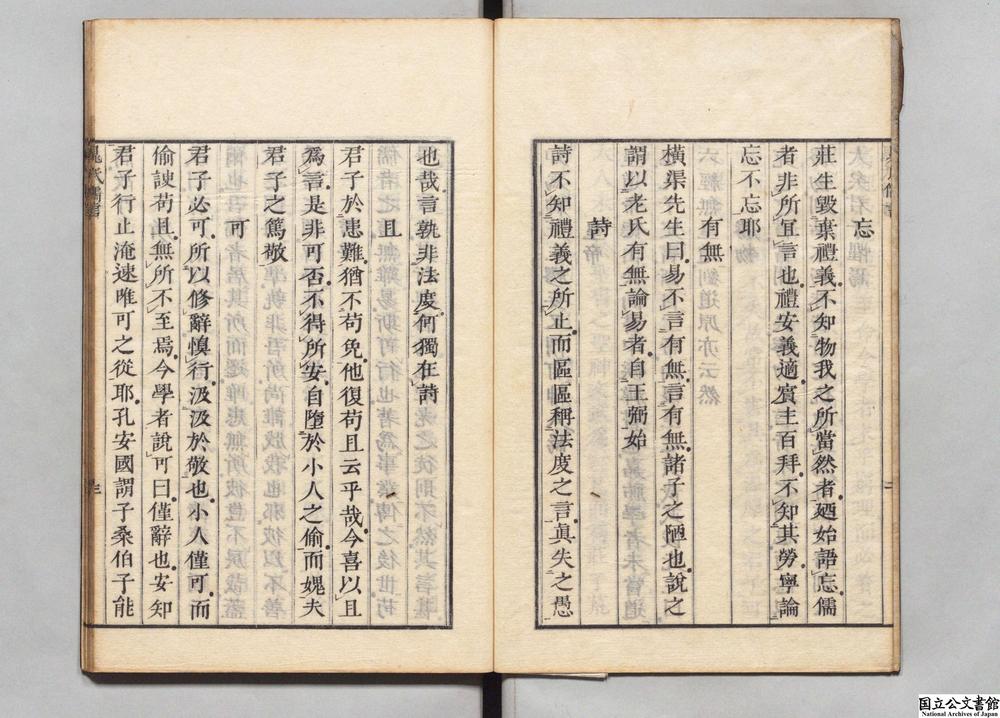 忘
莊生毀棄禮義不知物我之所當然者廼始語忘儒
者非所宜言也禮安義適賓主百拜不知其勞寧論
忘不忘耶
有無
橫渠先生曰易不言有無言有無諸子之陋也說之
謂以老氏有無論易者自王弼始
詩
詩不知禮義之所止而區區稱法度之言眞失之愚
也哉言孰非法度何獨在詩
且
君子於患難猶不苟免他復苟且云乎哉今喜以且
爲言是非可否不得所安自墮於小人之偷而媿夫
君子之篤敬
可
君子必可所以修辭愼行汲汲於敬也小人僅可而
偷諛苟且無所不至焉今學者說可曰僅辭也安知
君子行止淹速唯可之從耶孔安國謂子桑伯子能
三
国立公文書館
National Archives of Japan